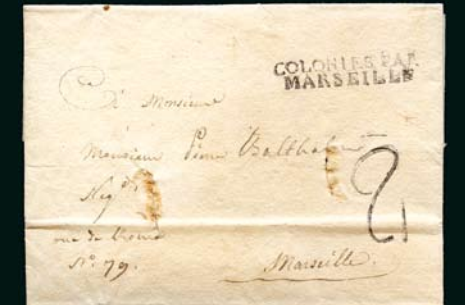 COLONIES PAR
MARSEILLE
A Monsieur
Monsieur Pierre Balthalon
Neg.t
rue de
N.° 79.
Marseille.
2